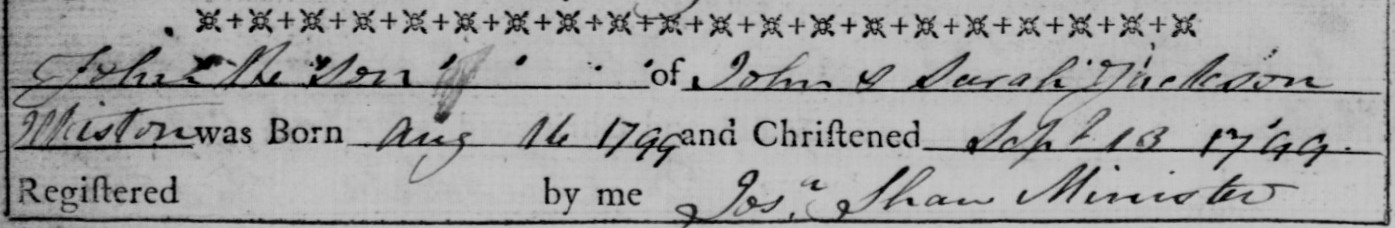 John the Son of John & Sarah Jackson
Whiston was Born Aug 16 1799 and Chriſtened Sept 13 1799.
Regiſtered by me Josª Shaw Minister